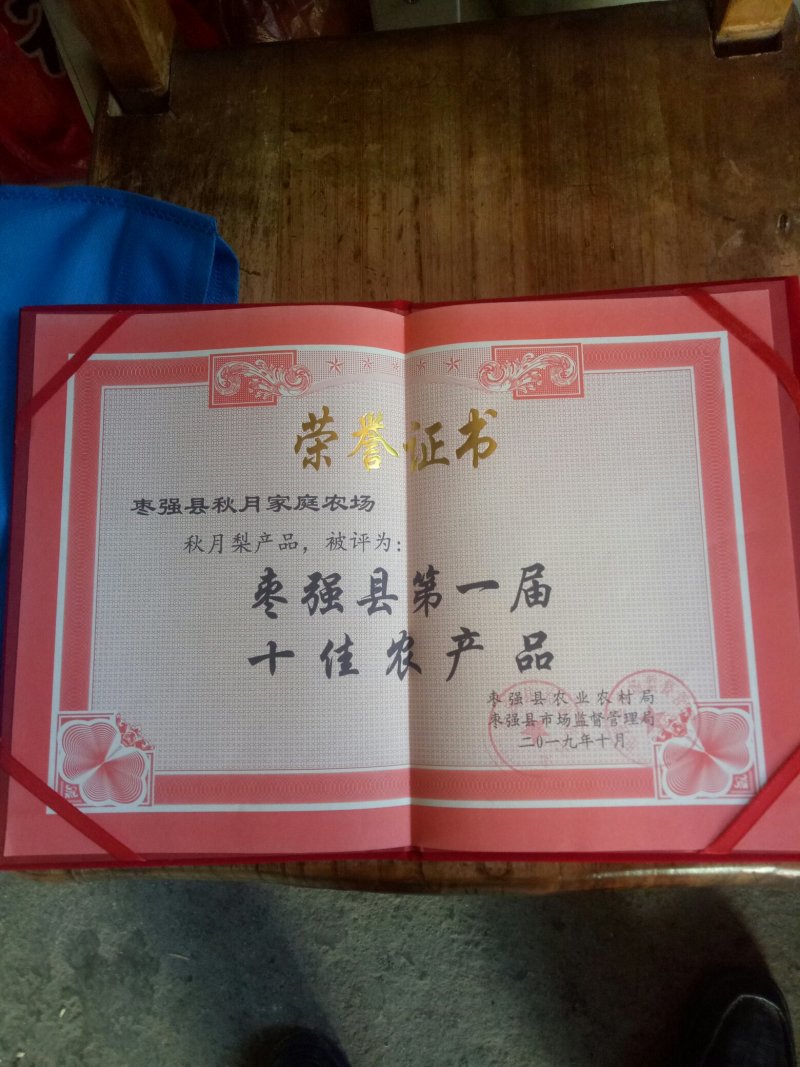 荣誉证书
枣强县秋月家庭农场
秋月梨产品，被评为：
枣强县第一届
十佳农产品
枣强县农业农村局
枣强县市场监督管理局
二〇一九年十月